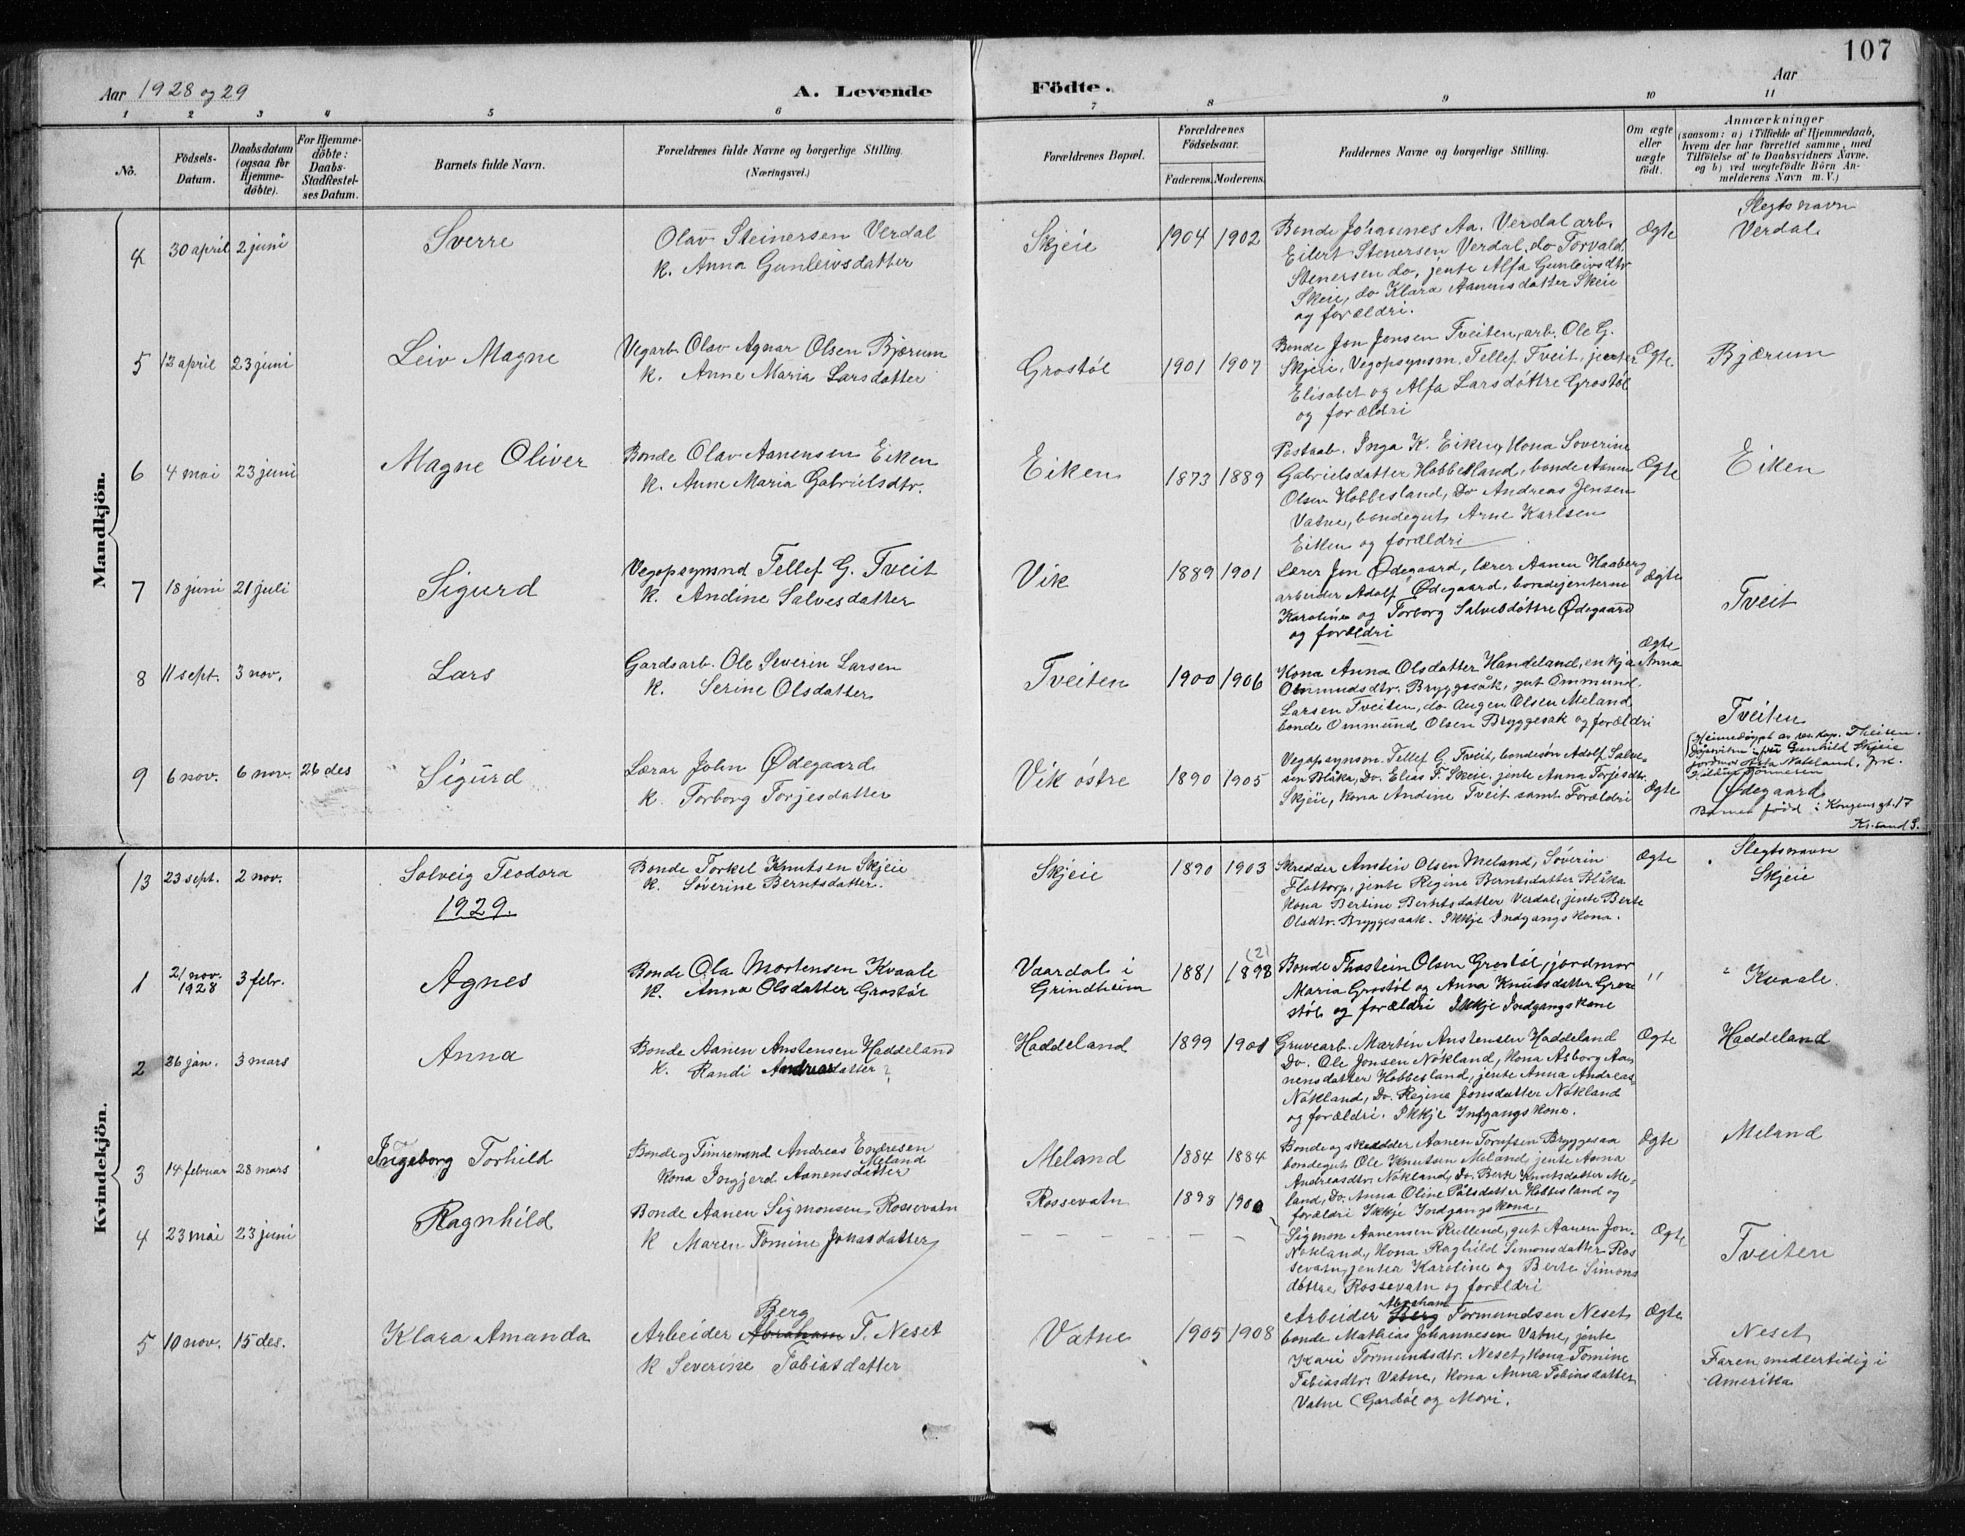 107
Aar 1928 og 29
A. Levende Födte.
Aar
1 2 3 4 5 6 7 8 9 10 11
No.
Födsels-
Datum.
Daabsdatum
(ogsaa for
Hjemme-
döbte).
For Hjemme-
döbte:
Daabs-
Stadfæstel-
ses Datum.
Barnets fulde Navn.
Forældrenes fulde Navne og borgerlige Stilling.
(Næringsvei.)
Forældrenes Bopæl.
Forældrenes
Födselsaar.
Faderens. Moderens.
Faddernes Navne og borgerlige Stilling.
Om ægte
eller
uægte
födt.
Anmærkninger
(saasom: a) i Tilfælde af Hjemmedaab,
hvem der har forrettet samme, med
Tilföielse af to Daabsvidners Navne.
og b) ved uægtefödte Börn An-
melderens Navn m. V.)
Mandkjön.
4 30 april 2 juni Sverre
Olav Steinersen Verdal
k. Anna Gunleivsdatter
Skjeie 1904 1902
Bonde Johannes Aa. Verdal arb.
Eilert Stenersen Verdal, do Torvald
Stenersen do, jente Alfa Gunleivsdtr
Skeie, do Klara Aanensdatter Skeie
og forældri.
Ægte
Slegtsnavn
Verdal
5 12 april 23 juni Leiv Magne
Vegarb. Olav Agnar Olsen Bjærum
k. Anne Maria Larsdatter
Grostøl 1901 1907
Bonde Jon Jensen Tveiten, arb. Ole G.
Skjeie, Vegopsynsm. Tellef Tveit, jenter
Elisabet og Alfa Larsdøttre Grostøl
og forældri
Ægte
Bjærum
6 4 mai 23 juni Magne Oliver
Bonde Olav Aanensen Eiken
k. Anne Maria Gabrielsdtr.
Eiken 1873 1889
Postaab. Inga K. Eiken, Kona Soverine
Gabrielsdatter Hobbesland, bonde Aanen
Olsen Hobbesland, Do Andreas Jensen
Vatne, bondegut Arne Karlsen
Eiken og forældri
Ægte
Eiken
7 18 juni 21 juli Sigurd
Vegopsynsmd Tellef G. Tveit
k. Andine Salvesdatter
Vik 1889 1901
Lærer Jon Ødegaard, lærer Aanen Haaberg
arbeider Adolf Ødegaard, bondejenterne
Karoline og Torborg Salvesdøttre Ødegaard
og forældri
Ægte
Tveit
8 11 sept. 3 nov. Lars
Gardsarb. Ole Severin Larsen
k. Serine Olsdatter
Tveiten 1900 1906
Kona Anna Olsdatter Handeland, enkja Anna
Ommundsdtr. Bryggesåk, gut Ommund
Larsen Tveiten, do Augen Olsen Meland,
bonde Ommund Olsen Bryggesak og forældri
Ægte
Tveiten
9 6 nov. 6 nov. 26 des Sigurd
Lærar John Ødegaard
k. Torborg Torjesdatter
Vik østre 1890 1905
Vegopsynsm. Tellef G. Tveit, bondesøn Adolf Salve-
sen Blåka, Do. Elias T. Skeie, jente Anna Torjesdtr.
Skjeie, kona Andine Tveit samt Forældri
Ægte
(Heimedøypt av res. kap. Theisen.
Døpsvitne: fru Gunhild Skjeie
jordmor Nøkland, frk.
Ødegaard
Barnet født i Kongensgt. 17
Kr.sand S.
Kvindekjön.
13 23 sept. 2 nov. Solveig Teodora
Bonde Torkel Knutsen Skjeie
k. Søverine Berntsdatter.
Skjeie 1890 1903
Skredder Anstein Olsen Meland, Søverin
Flottorp, jente Regine Berntsdatter Blåka
Kona Bertine Berntsdatter Verdal, jente Berte
Olsdtr. Bryggesaak. Ikkje Indgangskona.
Ægte
Slegtsnavn
Skjeie
1929.
1 21 nov. 1928 3 febr. Agnes
Bonde Ola Mortensen Kvaale
k. Anna Olsdatter Grostøl
Vaardal i
Grindheim
1881 1898 (2)
Bonde Thostein Olsen Grostøl, jordmor
Maria Grostøl og Anna Knutsdatter Gro-
støl og forældri Ikkje Indgangskone
"
" Kvaale.
2 26 jan. 3 mars Anna
Bonde Aanen Anstensen Haddeland
k. Randi Andreasdatter ?
Haddeland 1899 1901
Gruvearb. Martin Anstensen Haddeland
Do. Ole Jonsen Nøkland, Kona Asborg Aa-
nensdatter Hobbesland, jente Anna Andreas.
Nøkland, Do. Regine Jonsdatter Nøkland
og forældri. Ikkje Indgangskone.
Ægte
Haddeland
3 14 februar 28 mars Ingeborg Torhild
Bonde og Tømremand Andreas Endresen
Meland
Kona Ingjerd Aanensdatter
Meland 1884 1884
Bonde og skredder Aanen Torufsen Bryggesaa
bondegut Ole Knutsen Meland jente Anna
Andreasdtr. Nøkland, Do. Berte Knutsdatter Me-
land, Do. Anna Oline Pålsdatter Hobbesland og
forældri Ikkje Indgangskona,
Ægte
Meland
4 23 mai 23 juni Ragnhild
Bonde Aanen Sigmonsen Rossevatn
k Maren Tomine Jonasdatter
Rossevatn 1898 1900
Sigmon Aanensen Rulland, gut Aanen Jon-
Nøkland, Kona Raghild Simonsdatter Ros
sevatn, jentea Karoline og Berte Simons
døttre Rossevatn og forældri
Ægte
Tveiten
5 10 nov. 15 des. Klara Amanda
Berg
Arbeider Abraham T. Neset
k Severine Tobiasdatter
Vatne 1905 1908
Abraham
Arbeider Berg Tormundsen Neset,
bonde Mathias Johannesen Vatne, jente
Kari Tormundsdtr. Neset, Kona Tomine
Tobiasdtr. Vatne, Kona Anna Tobiasdatter
Vatne (Gardøl og Mori.
Ægte
Neset
Faren midlertidig i
Amerika